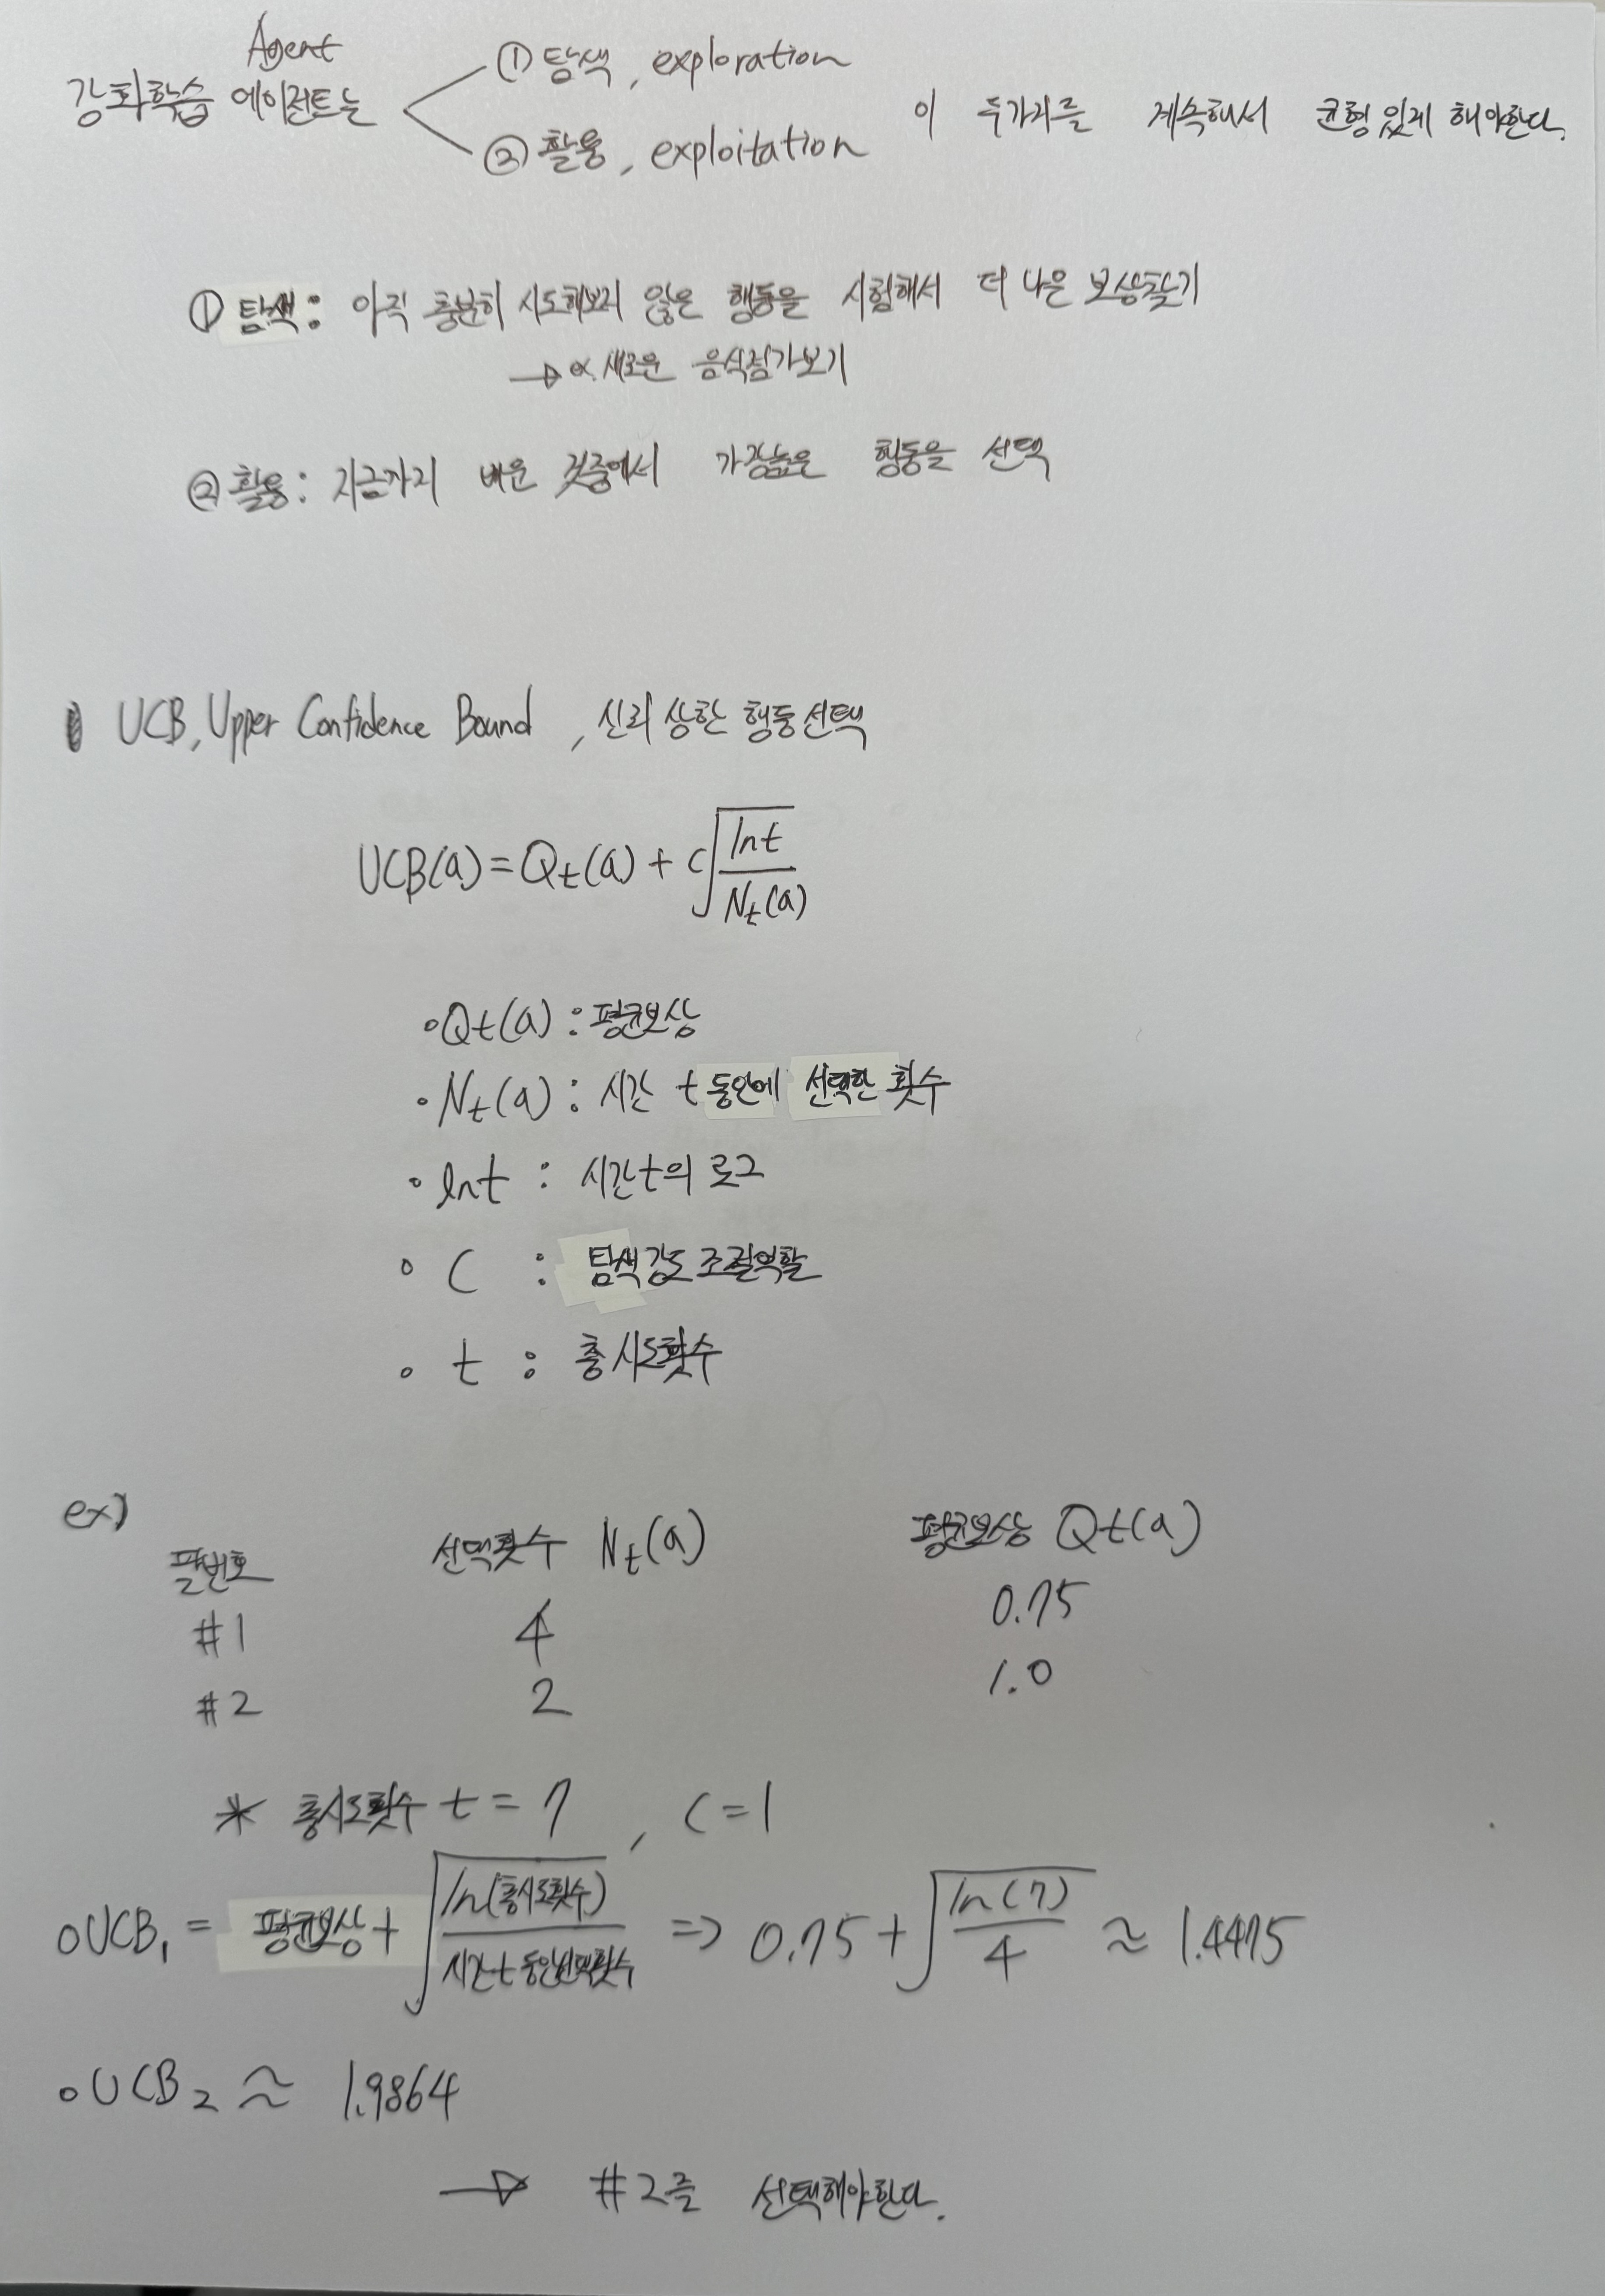 Agent
강화학습 에이전트는
① 탐색, exploration
② 활용, exploitation
이 두가지를 계속해서 균형 있게 해야한다.
① 탐색: 아직 충분히 시도해보지 않은 행동을 시험해서 더 나은 보상찾기
→ ex. 새로운 음식점가보기
② 활용: 지금까지 배운 것중에서 가장높은 행동을 선택
UCB, Upper Confidence Bound, 신뢰 상한 행동선택
UCB(a) = Qt(a) + c√(ln t / Nt(a))
• Qt(a) : 평균보상
• Nt(a) : 시간 t 동안에 선택한 횟수
• ln t : 시간 t의 로그
• C : 탐색강도 조절역할
• t : 총시도횟수
ex)
팔번호 선택횟수 Nt(a) 평균보상 Qt(a)
#1 4 0.75
#2 2 1.0
* 총시도횟수 t = 7, C = 1
• UCB₁ = 평균보상 + √(ln(총시도횟수) / 시간t 동안선택횟수) => 0.75 + √(ln(7) / 4) ≈ 1.4475
• UCB₂ ≈ 1.9864
→ #2를 선택해야한다.